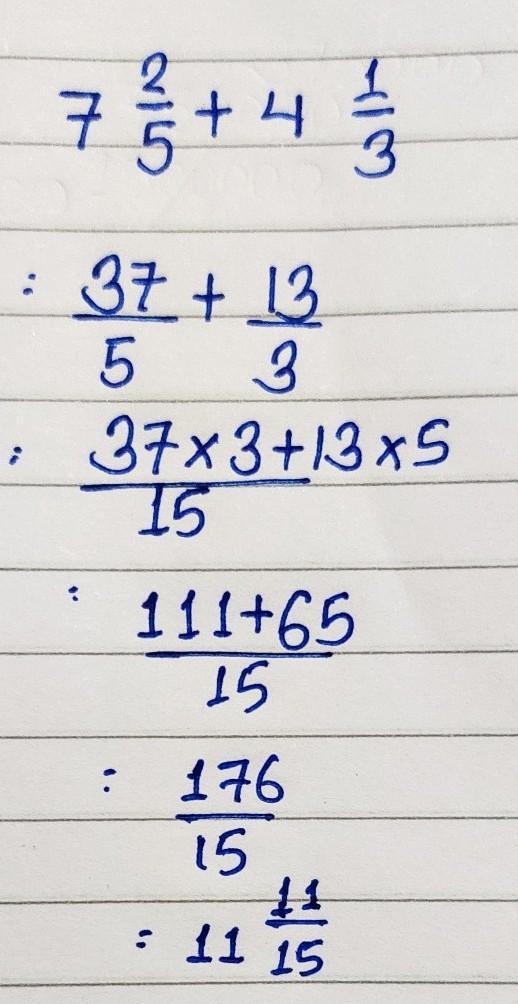 7 2/5 + 4 1/3
: 37/5 + 13/3
: 37×3+13×5/15
: 111+65/15
: 176/15
= 11 11/15